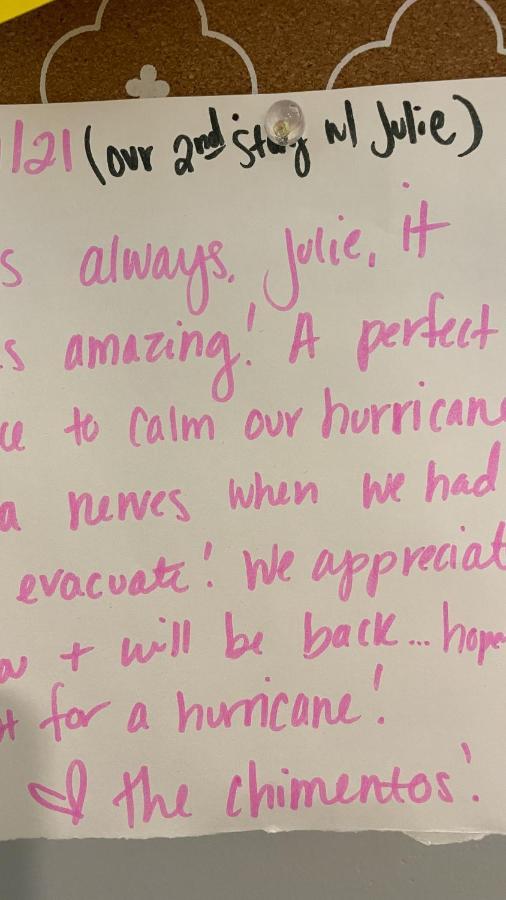 /21 (our 2nd stay w/ Julie)
s always, Julie, it
s amazing! A perfect
ce to calm our hurricane
a nerves when we had
evacuate! We appreciat
+ will be back... hope
t for a hurricane!
♡ the chimentos!